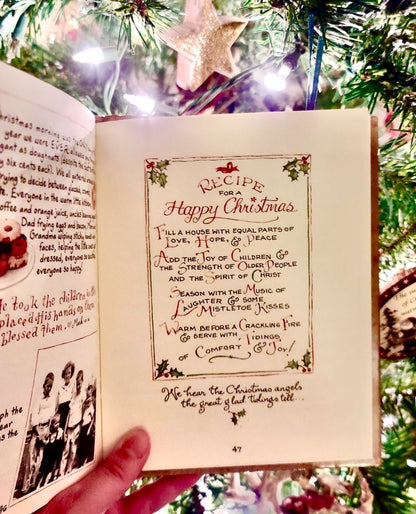 Christmas morning was
year we were EVER allowed
gant as doughnuts
six cents each). We all
trying to decide between
Everyone in the warm little
coffee and orange juice,
Dad frying eggs and bacon,
Grandma wiping sticky
faces, helping the
dressed, everyone
everyone so happy!
He took the children in
placed His hands on them
blessed them.
RECIPE
FOR A
Happy Christmas
FILL A HOUSE WITH EQUAL PARTS OF
LOVE, HOPE, & PEACE
ADD THE JOY OF CHILDREN &
THE STRENGTH OF OLDER PEOPLE
AND THE SPIRIT OF CHRIST
SEASON WITH THE MUSIC OF
LAUGHTER & SOME
MISTLETOE KISSES
WARM BEFORE A CRACKLING FIRE
& SERVE WITH TIDINGS
OF COMFORT & JOY!
We hear the Christmas angels
the great glad tidings tell...
47